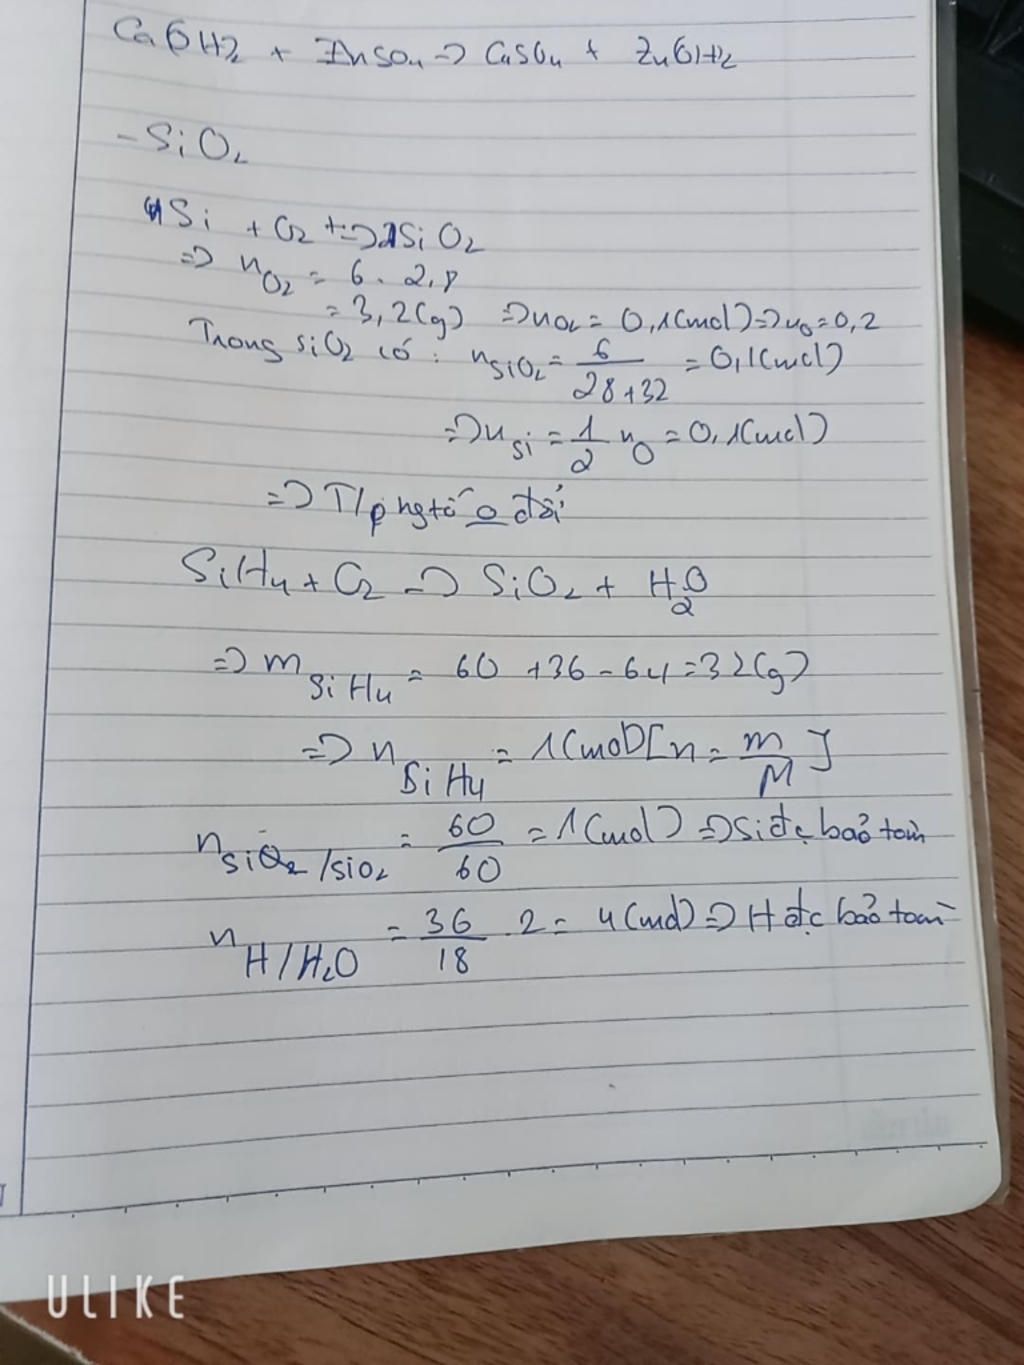 Ca OH2 + ZnSO4 => CaSO4 + ZnOH2
- SiO2
Si + O2 => SiO2
=> nO2 = 6 . 2,8
= 3,2(g) => nO2 = 0,1(mol) => nO = 0,2
Trong SiO2 có : nSiO2 = 6/(28+32) = 0,1(mol)
=> nSi = 1/2 nO = 0,1(mol)
=> T/p ngtố o đổi
SiH4 + O2 -> SiO2 + H2O
=> mSiH4 = 60 + 36 - 64 = 32(g)
=> nSiH4 = 1(mol) [n = m/M]
nSiO2/SiO2 = 60/60 = 1(mol) => Si đc bảo toàn
nH/H2O = 36/18 . 2 = 4(mol) => H đc bảo toàn
ULIKE